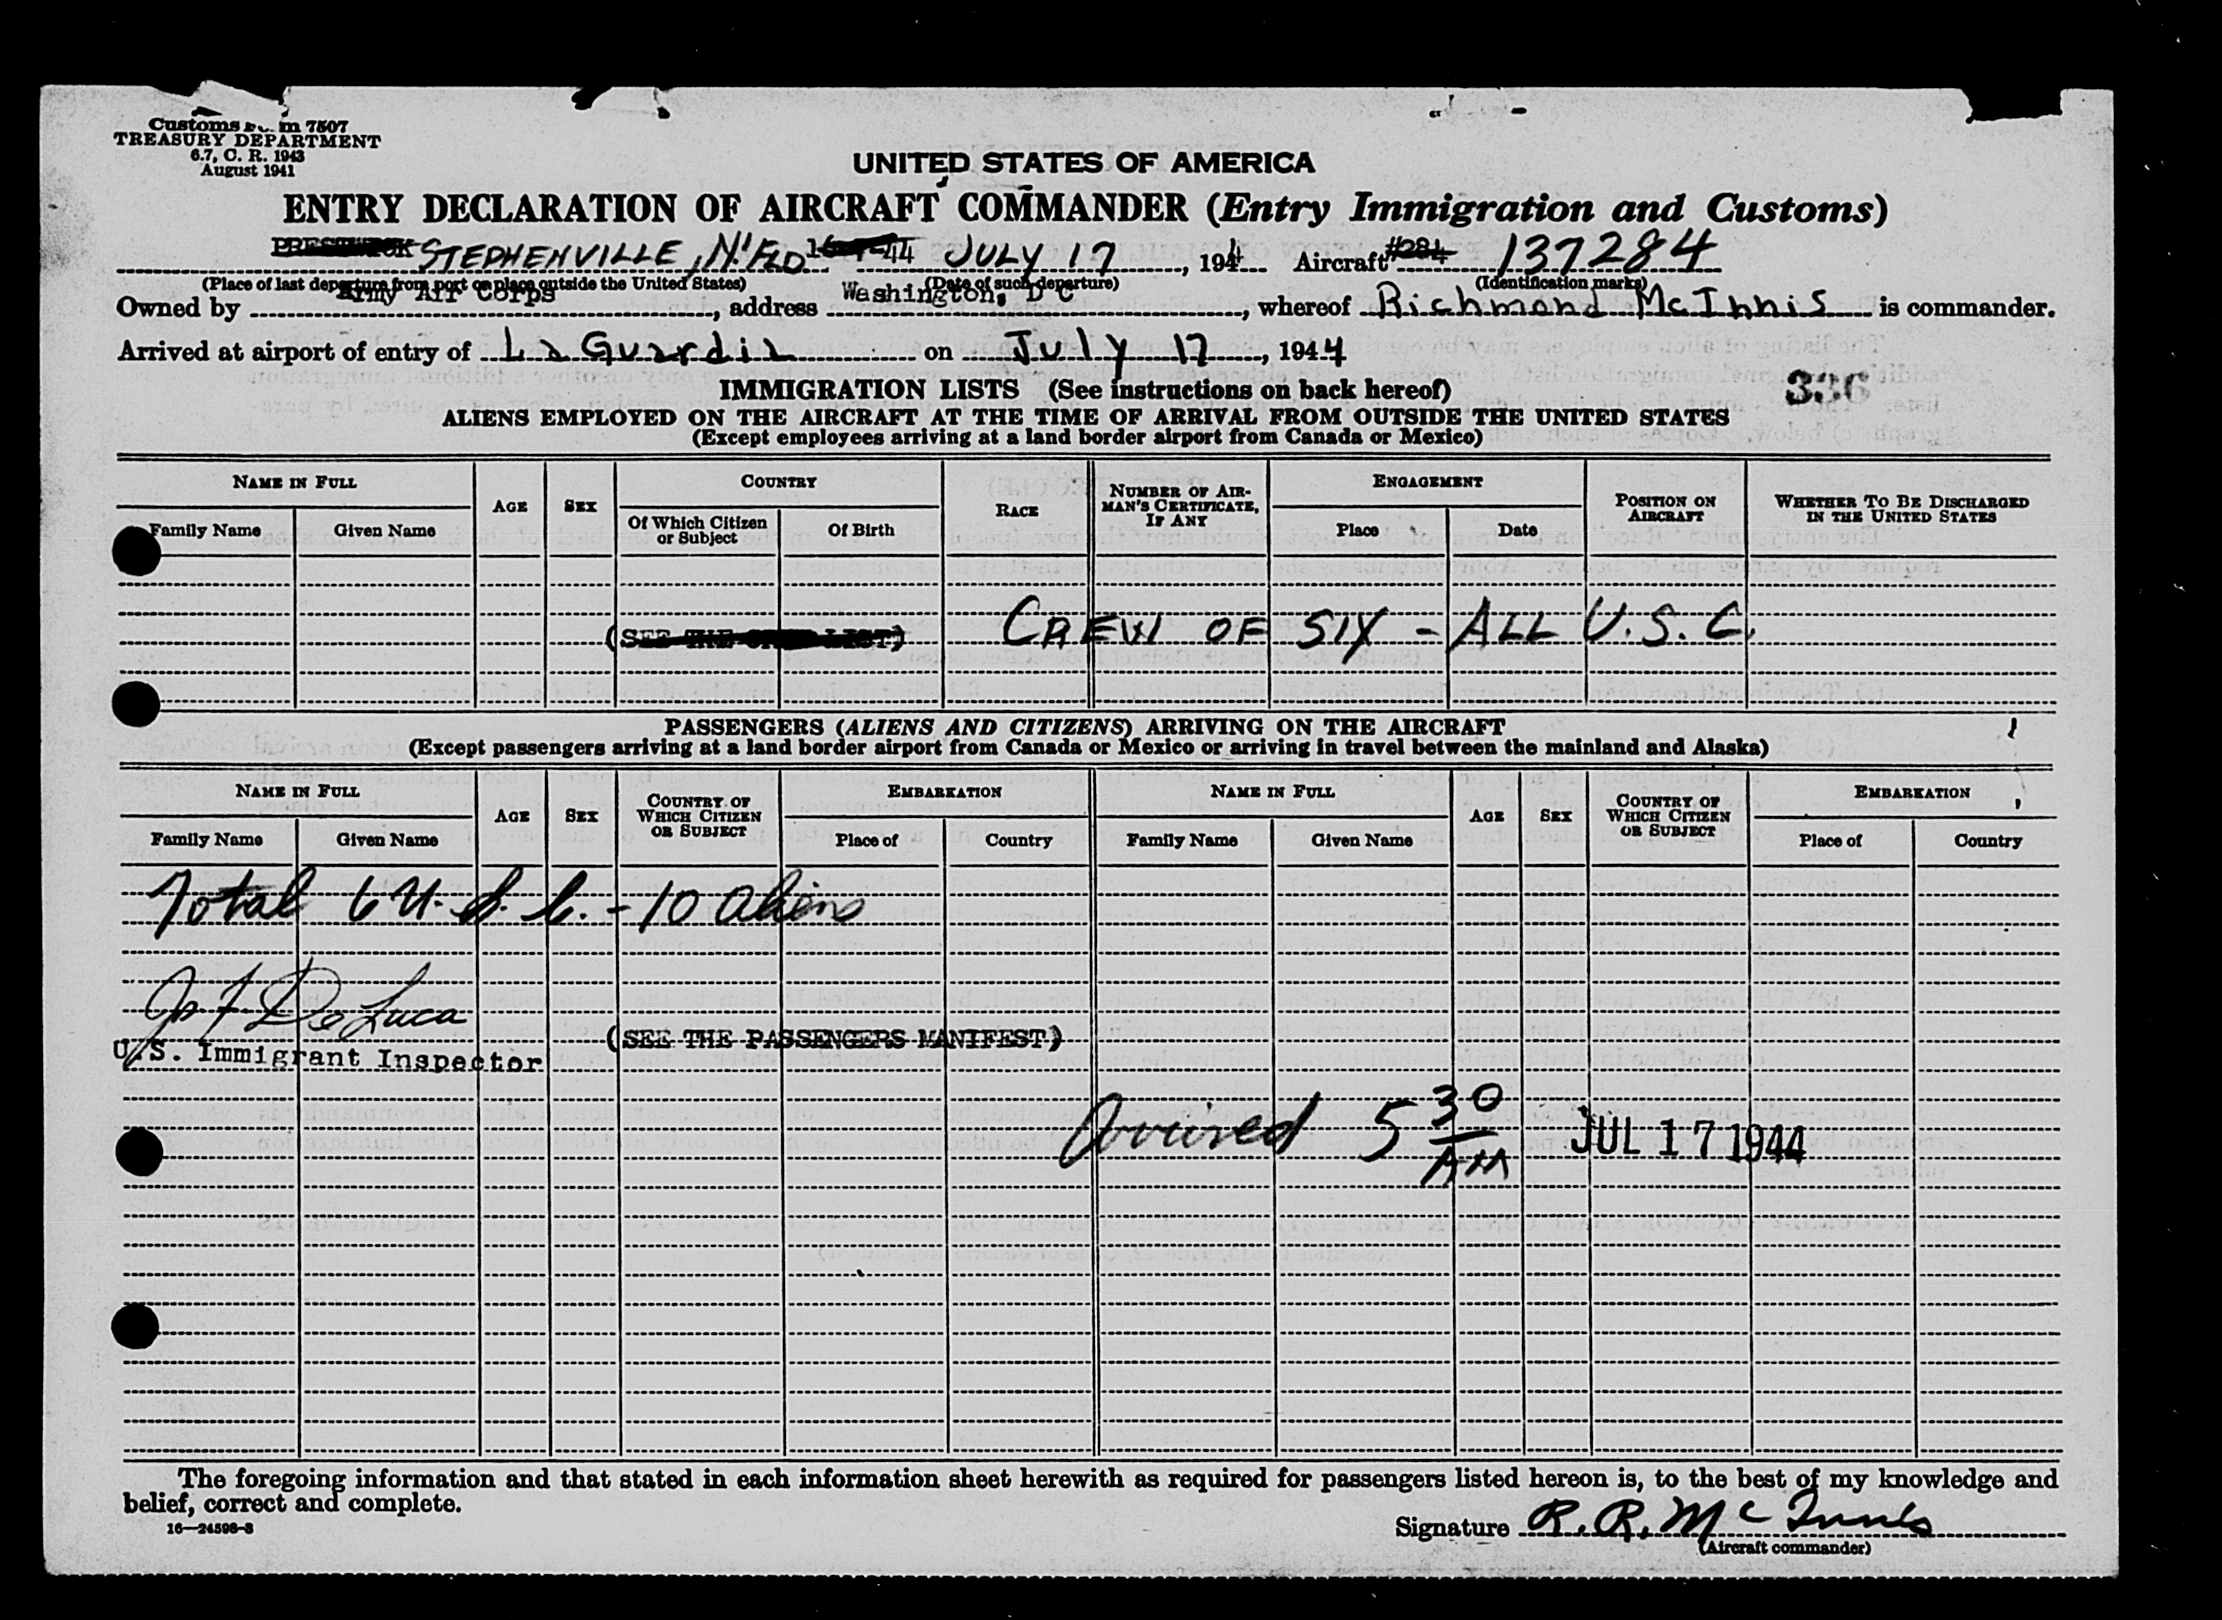 Customs Form 7507
TREASURY DEPARTMENT
6.7, C. R. 1943
August 1941
UNITED STATES OF AMERICA
ENTRY DECLARATION OF AIRCRAFT COMMANDER (Entry Immigration and Customs)
STEPHENVILLE, N'FLD. JULY 17, 1944 Aircraft #284 137284
(Place of last departure from port or place outside the United States) (Date of such departure) (Identification marks)
Owned by Army Air Corps, address Washington, D C, whereof Richmond McInnis is commander.
Arrived at airport of entry of La Guardia on July 17, 1944
IMMIGRATION LISTS (See instructions on back hereof)
336
ALIENS EMPLOYED ON THE AIRCRAFT AT THE TIME OF ARRIVAL FROM OUTSIDE THE UNITED STATES
(Except employees arriving at a land border airport from Canada or Mexico)
NAME IN FULL AGE SEX COUNTRY RACE NUMBER OF AIRMAN'S CERTIFICATE, IF ANY ENGAGEMENT POSITION ON AIRCRAFT WHETHER TO BE DISCHARGED IN THE UNITED STATES
Family Name Given Name Of Which Citizen or Subject Of Birth Place Date
(SEE THE CREW LIST) CREW OF SIX - ALL U.S.C.
PASSENGERS (ALIENS AND CITIZENS) ARRIVING ON THE AIRCRAFT
(Except passengers arriving at a land border airport from Canada or Mexico or arriving in travel between the mainland and Alaska)
NAME IN FULL AGE SEX COUNTRY OF WHICH CITIZEN OR SUBJECT EMBARKATION NAME IN FULL AGE SEX COUNTRY OF WHICH CITIZEN OR SUBJECT EMBARKATION
Family Name Given Name Place of Country Family Name Given Name Place of Country
Total 6 U.S.C. - 10 aliens
De Luca
(SEE THE PASSENGERS MANIFEST)
U.S. Immigrant Inspector
Arrived 5 30 AM JUL 17 1944
The foregoing information and that stated in each information sheet herewith as required for passengers listed hereon is, to the best of my knowledge and
belief, correct and complete.
16—24598-3
Signature R. R. McInnis
(Aircraft commander)